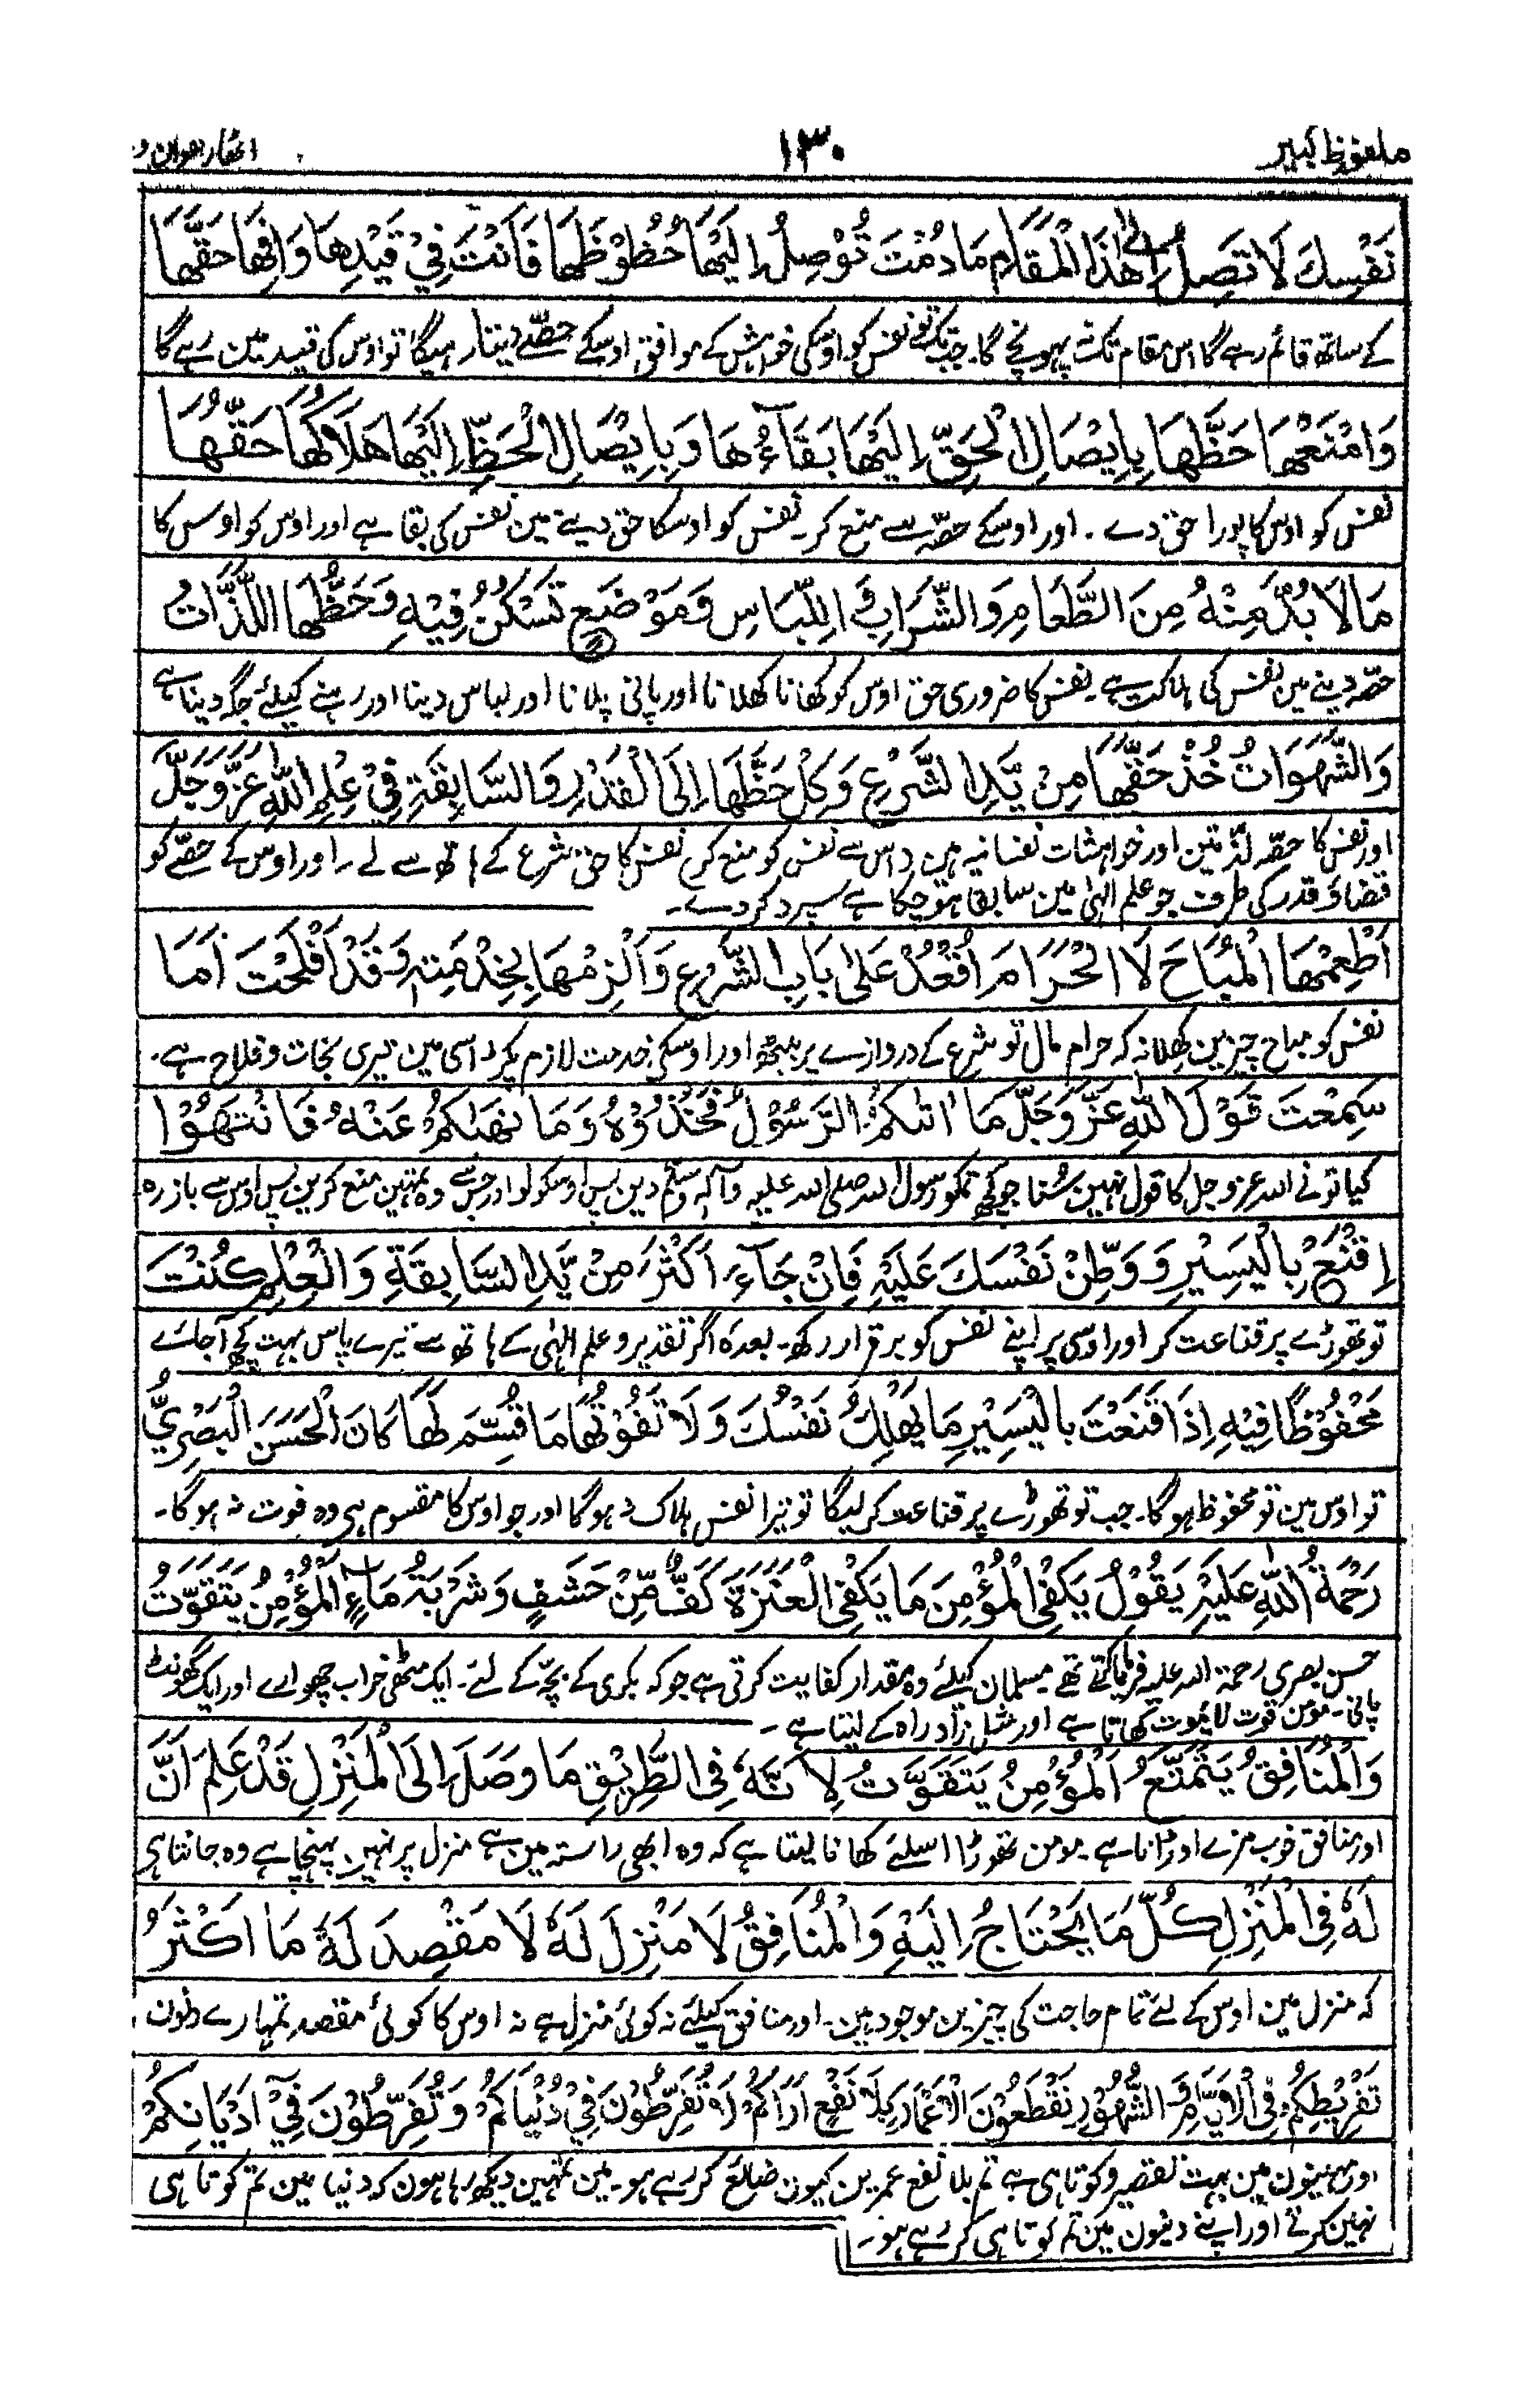 ملفوظ کبیر ۱۳۰ اٹھارہوان و
نَفْسِكَ لَا تَصِلُ اِلٰى هٰذَا الْمَقَامِ مَادُمْتَ تُوْصِلُ اِلَيْهَا حُظُوْظَهَا فَاَنْتَ فِيْ قَيْدِهَا وَافِهَا حَقَّهَا
کے ساتھ قائم رہے گا اس مقام تک نہ پہونچے گا۔ جب تک تو نفس کو اوسکی خواہش کے موافق اوسکے حصّے دیتا رہیگا تو اوس کی قید مین رہے گا
وَامْنَعْهَا حَظَّهَا بِاِيْصَالِ الْحَقِّ اِلَيْهَا بَقَآءُهَا وَبِاِيْصَالِ الْحَظِّ اِلَيْهَا هَلَاكُهَا حَقُّهَا
نفس کو اوس کا پورا حق دے ۔ اور اوسکے حصّہ سے منع کر۔ نفس کو اوسکا حق دینے مین نفس کی بقا ہے اور اوس کو اوس کا
مَالَا بُدَّ مِنْهُ مِنَ الطَّعَامِ وَالشَّرَابِ وَ اللِّبَاسِ وَمَوْضَعٍ تَسْكُنُ فِيْهِ وَحَظُّهَا اللَّذَّاتُ
حصّہ دینے مین نفس کی ہلاکت ہے۔ نفس کا ضروری حق اوس کو کھانا کھلانا اور پانی پلانا اور لباس دینا اور رہنے کیلئے جگہ دینا ہے
وَالشَّهَوَاتُ خُذْ حَقَّهَا مِنْ يَّدِ الشَّرْعِ وَكِلْ حَظَّهَا اِلَى الْقَدْرِ وَالسَّابِقَةِ فِيْ عِلْمِ اللّٰهِ عَزَّوَجَلَّ
اور نفس کا حصّہ لذّتین اور خواہشات نفسانیہ ہین اس سے نفس کو منع کر۔ نفس کا حق شرع کے ہاتھ سے لے۔ اور اوس کے حصّے کو
قضاؤ قدر کی طرف جو علم الٰہی مین سابقا ہو چکا ہے سپرد کر دے۔
اَطْعِمْهَا الْمُبَاحَ لَا الْحَرَامَ اُقْعُدْ عَلٰى بَابِ الشَّرْعِ وَاَلْزِمْهَا بِخِدْمَتِهٖ وَقَدْ اَفْلَحْتَ اَمَا
نفس کو مباح چیزین کھلا نہ کہ حرام مال تو شرع کے دروازے پر بیٹھ اور اوسکی خدمت لازم پکڑ اسی مین تیری نجات و فلاح ہے۔
سَمِعْتَ قَوْلَ اللّٰهِ عَزَّوَجَلَّ مَا اٰتٰىكُمُ الرَّسُوْلُ فَخُذُوْهُ وَمَا نَهٰىكُمْ عَنْهُ فَانْتَهُوْا
کیا تو نے اللہ عزوجل کا قول نہین سُنا جو کچھ تمکو رسول اللہ صلی اللہ علیہ وآلہ وسلم دین پس اوسکو لو اور جس سے وہ تمہین منع کرین پس اوس سے باز رہ
اِقْنَعْ بِالْيَسِيْرِ وَوَطِّنْ نَفْسَكَ عَلَيْهِ فَاِنْ جَآءَ اَكْثَرُ مِنْ يَّدِ السَّابِقَةِ وَالْعِلْمِ كُنْتَ
تو تھوڑے پر قناعت کر اور اوسی پر اپنے نفس کو برقرار رکھ۔ بعدہٗ اگر تقدیر و علم الٰہی کے ہاتھ سے تیرے پاس بہت کچھ آجائے
مَحْفُوْظًا فِيْهِ اِذَا قَنَعْتَ بِالْيَسِيْرِ مَا يَهْلِكُ نَفْسُكَ وَلَا تَفُوْتُهَا مَا قُسِّمَ لَهَا كَانَ الْحَسَنَ الْبَصَرِيُّ
تو اوس مین تو محفوظ ہوگا۔ جب تو تھوڑے پر قناعت کر لیگا تو تیرا نفس ہلاک نہ ہوگا اور جو اوس کا مقسوم ہی وہ فوت نہ ہوگا۔
رَحْمَةُ اللّٰهِ عَلَيْهِ يَقُوْلُ يَكْفِي الْمُؤْمِنَ مَا يَكْفِي الْعَنَزَةَ كَفٌّ مِّنْ حَشَفٍ وَشَرْبَةُ مَاءٍ الْمُؤْمِنُ يَتَقَوَّتُ
حسن بصری رحمۃ اللہ علیہ فرمایا کرتے تھے۔ مسلمان کیلئے وہ مقدار کفایت کرتی ہے جو کہ بکری کے بچّہ کے لئے۔ ایک مٹھی خراب چھوارے اور ایک گھونٹ
پانی۔ مومن قوت لایموت کھاتا ہے اور مثل زاد راہ کے لیتا ہے ۔
وَالْمُنَافِقُ يَتَمَتَّعُ اَلْمُؤْمِنُ يَتَقَوَّتُ لِاَنَّهٗ فِي الطَّرِيْقِ مَا وَصَلَ اِلَى الْمَنْزِلِ قَدْ عَلِمَ اَنَّ
اور منافق خوب مزے اوڑاتا ہے۔ مومن تھوڑا اسلئے کھانا لیتا ہے کہ وہ ابھی راستہ مین ہے منزل پر نہین پہنچا ہے وہ جانتا ہی
لَهٗ فِي الْمَنْزِلِ كُلَّ مَا يَحْتَاجُ اِلَيْهِ وَالْمُنَافِقُ لَا مَنْزِلَ لَهٗ لَا مَقْصِدَ لَهٗ مَا اَكْثَرُ
کہ منزل مین اوس کے لئے تمام حاجت کی چیزین موجود ہین۔ اور منافق کیلئے نہ کوئی منزل ہے نہ اوس کا کوئی مقصد تمہارے دنون
تَفْرِيْطِكُمْ فِي الْاَيَّامِ وَ الشُّهُوْرِ تَقْطَعُوْنَ الْاَعْمَارَ بِلَا نَفْعٍ اَرَاكُمْ لَا تُفَرِّطُوْنَ فِيْ دُنْيَاكُمْ وَتُفَرِّطُوْنَ فِيْ اَدْيَانِكُمْ
اور مہینون مین بہت تقصیر و کوتاہی ہے تم بلا نفع عمرین کیون ضائع کر رہے ہو۔ مین تمہین دیکھ رہا ہون کہ دنیا مین تم کوتاہی
نہین کرتے اور اپنے دینون مین تم کوتاہی کر رہے ہو۔